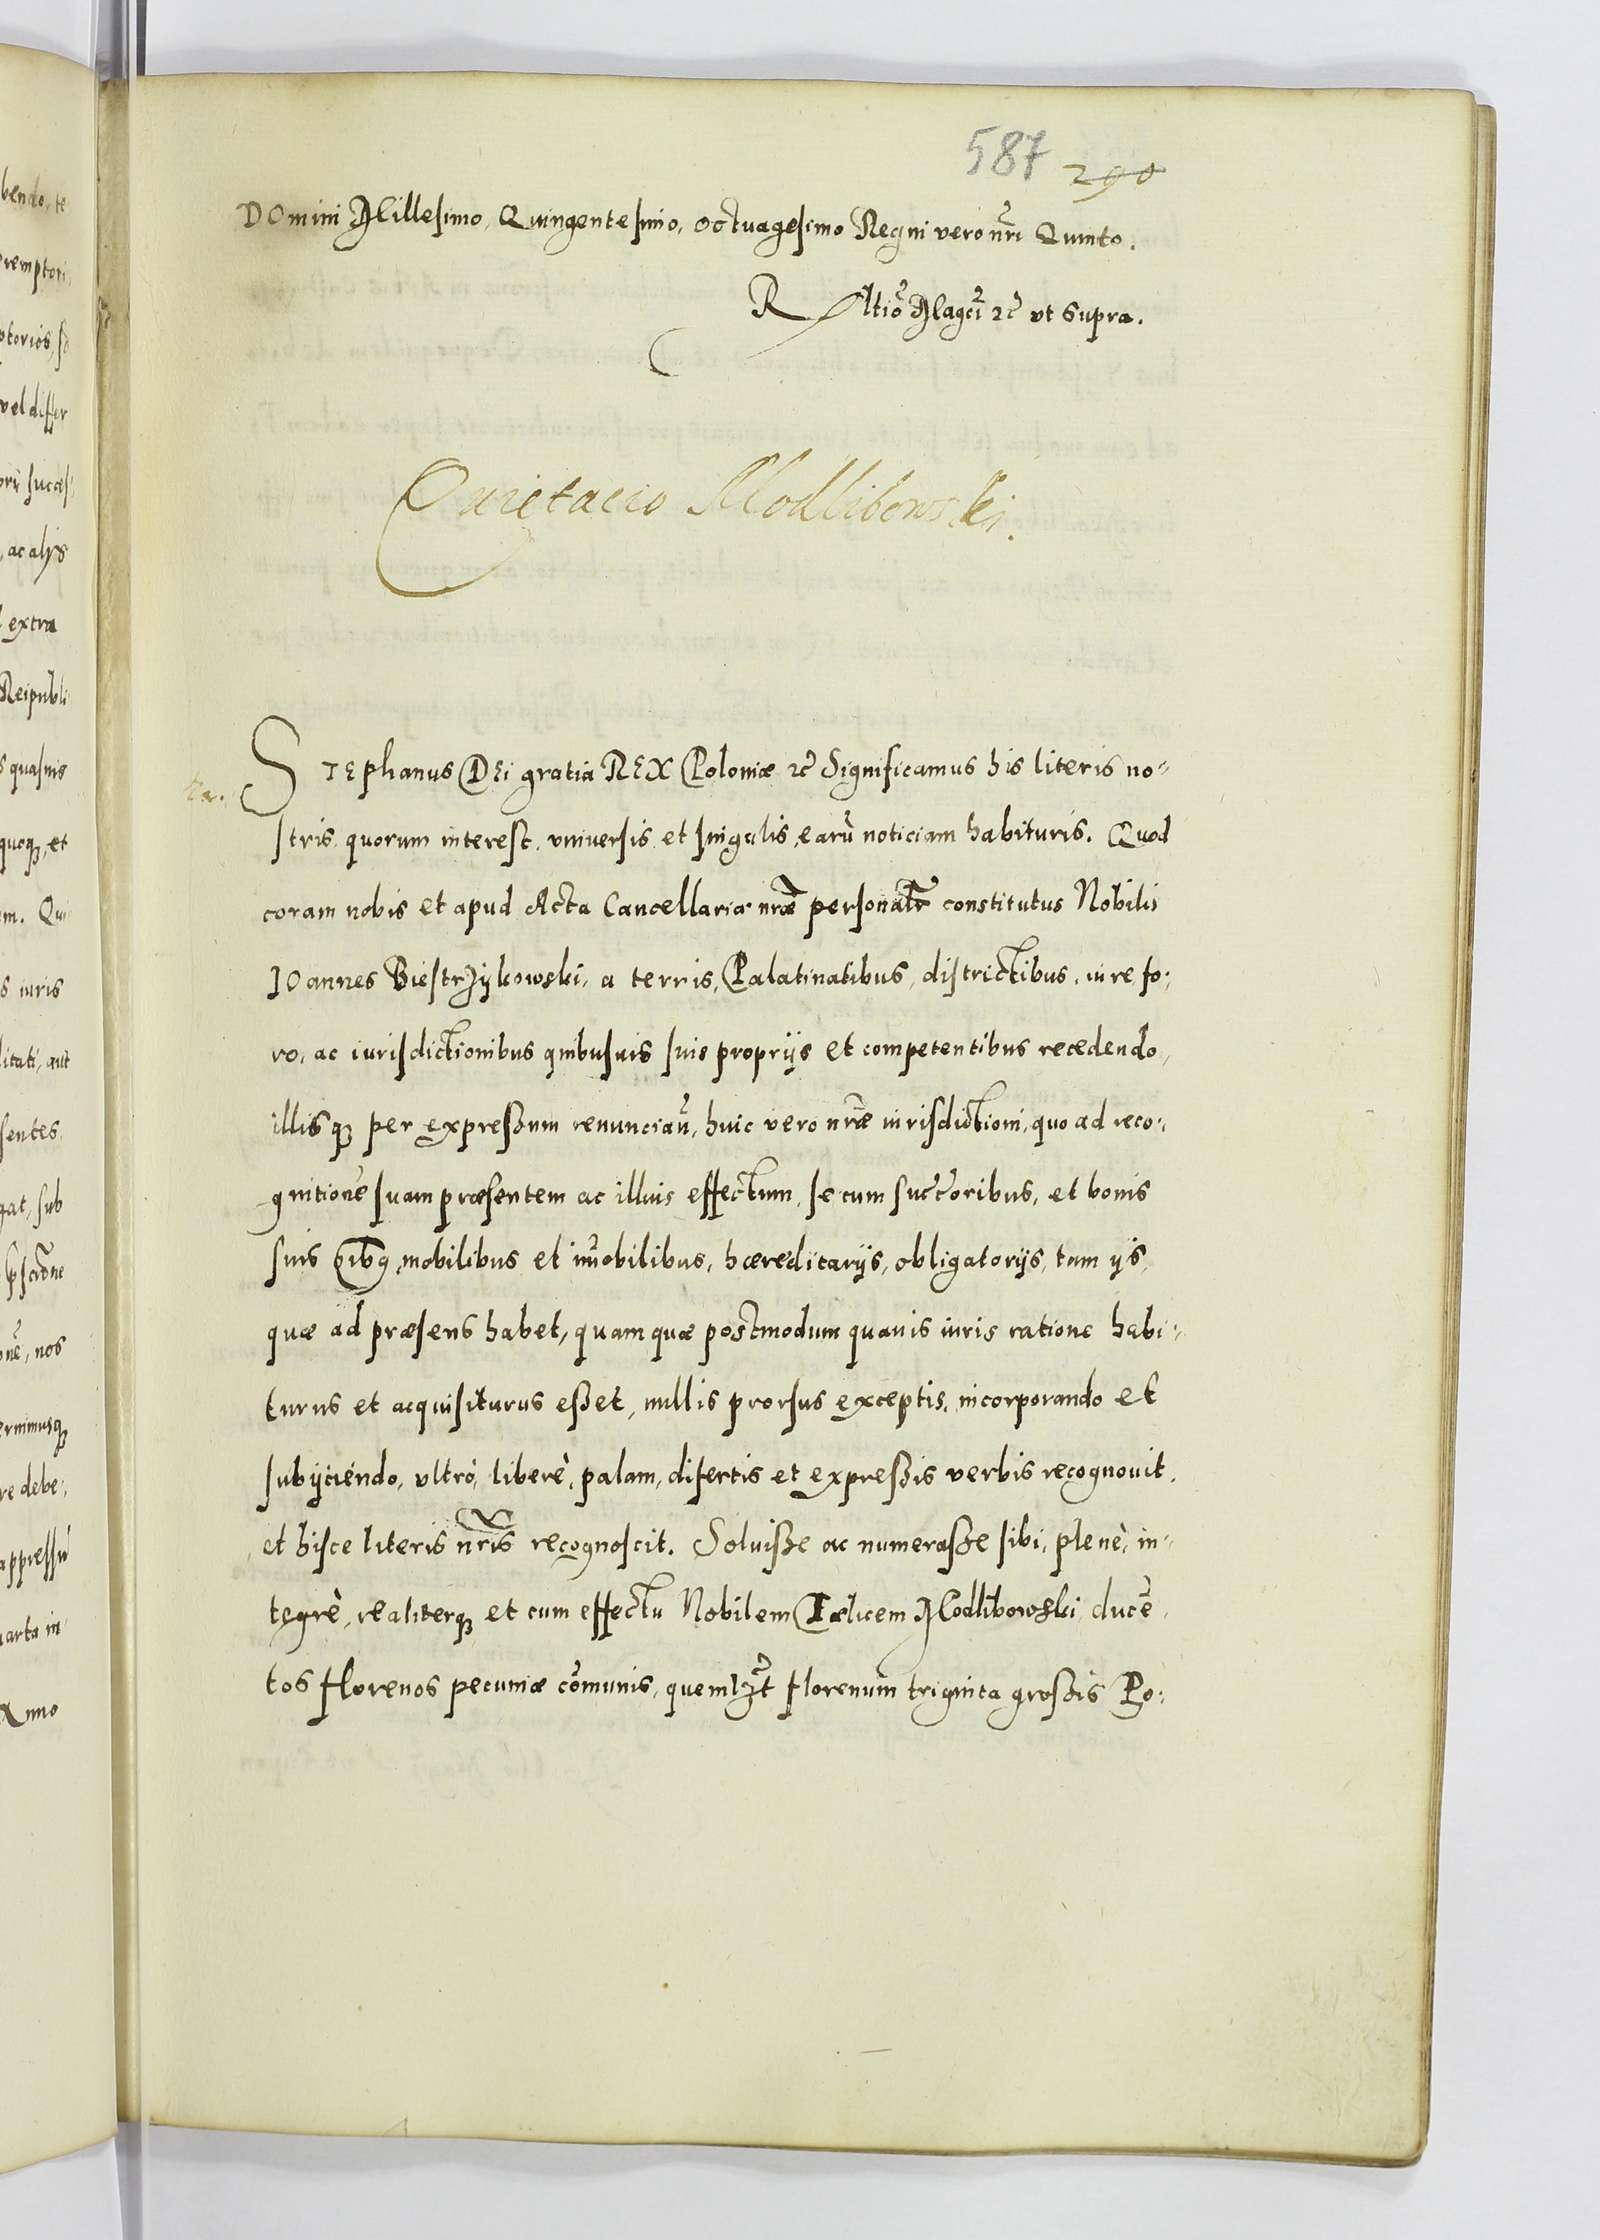 587 290
DOmini Millesimo, Quingentesimo, octuagesimo Regni vero nri Quinto.
Rltio Magci zc vt supra.
Quietacio Modlibowski.
STEphanus DEi gratia REX Poloniæ zc Significamus his literis no-
stris quorum interest, vniversis et singulis, earũ noticiam habituris. Quod
coram nobis et apud Acta Cancellariæ nræ personalr constitutus Nobilis
JOannes Biestrzykowski, a terris, Palatinatibus, districtibus, iure fo-
ro, ac iurisdictionibus quibusuis suis proprijs et competentibus recedendo,
illisq3 per expressum renunciañ, huic vero nræ iurisdictioni, quo ad reco-
gnitionẽ suam præsentem ac illius effectum, se cum succoribus, et bonis
suis oibg, mobilibus et im̃obilibus, hæreditarijs, obligatorijs, tam ijs,
quæ ad præsens habet, quam quæ postmodum quauis iuris ratione habi-
turus et acquisiturus eßet, nullis prorsus exceptis, incorporando et
subijciendo, vltrò, liberè, palam, disertis et expreßis verbis recognouit,
et hisce literis nris recognoscit. Soluiße ac numeraße sibi, plenè, in-
tegrè, realiterq3 et cum effectu Nobilem Fælicem Modlibowski, ducẽ-
tos florenos pecuniæ com̃unis, quemlzt florenum triginta großis Po-